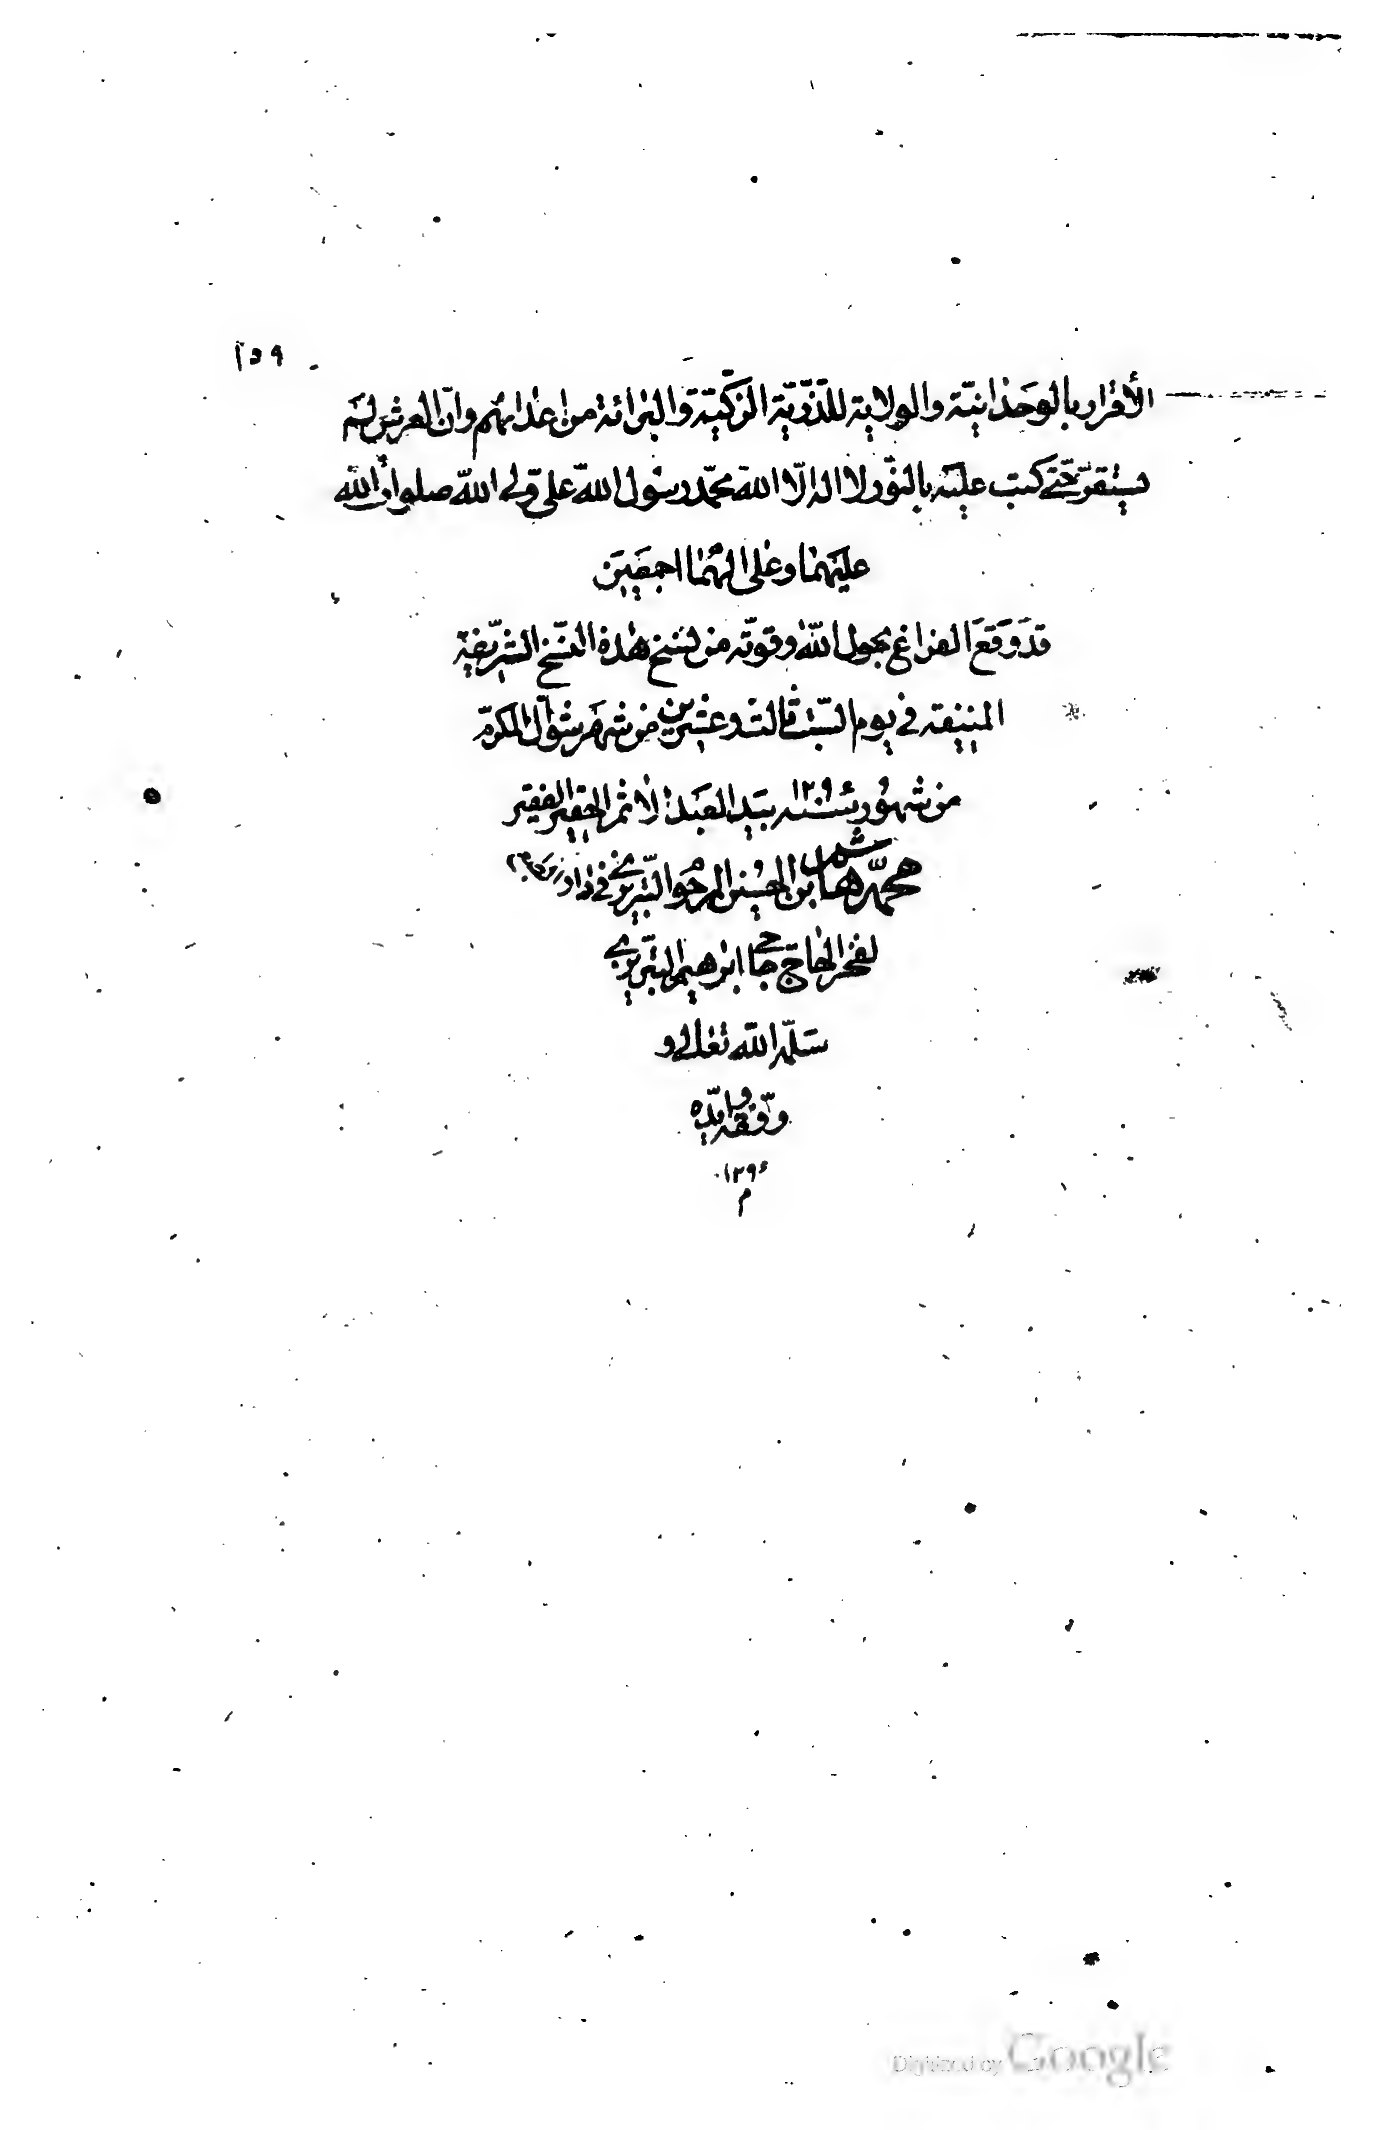 ١٥٩
الأقرار بالوحدانيّة والولاية للذّرّيّة الزّكيّة والبرائة من اعدائهم وانّ العرش لم
يستقرّ حتّى كتب عليه بالنّور لا اله الّا الله محمّد رسول الله علىّ ولى الله صلوات الله
عليهما وعلى الهما اجمعين
قد وقع الفراغ بحول الله وقوّته من نسخ هذه النّسخ الشّريفة
المنيفة فى يوم السّبت ثالث وعشرين من شهر شوّال المكرّم
من شهور سنه ١٢٩٤ بيد العبد الاثم الحقير الفقير
محمّد هاشم بن الحسين التبريزى فى دار
لفخر الحاجّ حاجى ابرهيم التّبريزى
سلّمه الله تعالى و
وفّقه وايّده
١٢٩٤
م
Digitized by Google